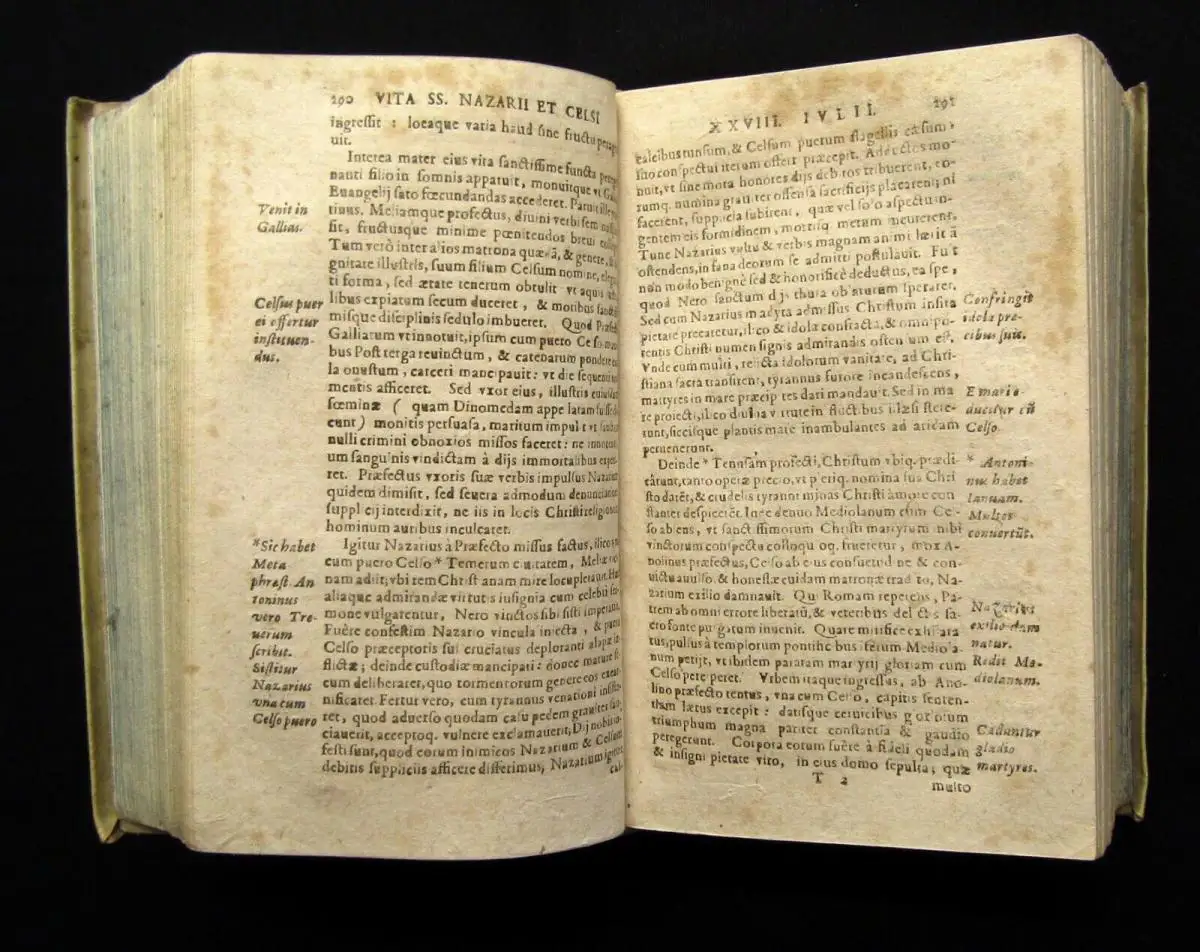 290 VITA SS. NAZARII ET CELSI
ingressit : locaque varia haud sine fructu
uit.
Interea mater eius vita sanctissime functa
nanti filio in somnis apparuit, monuitque vt
Euangelij sato fœcundandas accederet. Paruit ille
tinus. Meliamque profectus, diuini verbi semen
sit, fructusque minime pœnitendos breui
Tum verò inter alios matrona quædã, & genere, &
gnitate illustris, suum filium Celsum nomine,
ti forma, sed ætate tenerum obtulit vt aquis
libus expiatum secum duceret, & moribus
misque disciplinis sedulo imbueret. Quod
Galliarum vt innotuit, ipsum cum puero Celso
bus post terga reuinctum, & catenarum pondere
la onustum, carceri mancipauit: vt die sequenti
mentis afficeret. Sed vxor eius, illustris
fœminæ ( quam Dinomedam appellatam fuisse
cunt ) monitis persuasa, maritum impulit vt
nulli crimini obnoxios missos faceret: ne
um sanguinis vindictam à dijs immortalibus
ret. Præfectus vxoris suæ verbis impulsus Nazarium
quidem dimisit, sed seuera admodum denunciatione
suppl eij interdixit, ne iis in locis Christi religionem
hominum auribus inculcaret.
Igitur Nazarius à Præfecto missus factus, ilico
cum puero Celso * Temerum ciuitatem,
nam adiit; vbi rem Christianam mire locupletauit.
aliaque admirandæ virtutis insignia cum celebri
mone vulgarentur, Nero vinctos sibi sisti imperat.
Fuêre confestim Nazario vincula iniecta , &
Celso præceptoris sui cruciatus deploranti
flictæ; deinde custodiæ mancipati: donec mature
cum deliberaret, quo tormentorum genere eos
nificaret Fertur vero, cum tyrannus venationi
ret, quod aduerso quodam casu pedem grauiter
ciauerit, acceptoq. vulnere exclamauerit, Dij nobis
festi sunt, quod eorum inimicos Nazarium & Celsum
debitis suppliciis afficere differimus, Nazarium igitur
cal-
Venit in
Gallias.
Celsus puer
ei offertur
instituen-
dus.
*Sic habet
Meta
phrast. An
toninus
vero Tre-
uerum
scribit.
Sistitur
Nazarius
vna cum
Celso puero
XXVIII. IVLII. 291
calcibus tunsum, & Celsum puerum flagellis cæsum,
suo conspectui iterum offerri præcepit. Adductos mo-
nuit, vt sine mora honores dijs debitos tribuerent, eo-
rumq. numina grauiter offensa sacrificijs placarent; ni
facerent, supplicia subirent, quæ vel solo aspectu in-
gentem eis formidinem, mortisq. metum incuterent.
Tunc Nazarius vultu & verbis magnam animi lætitiã
ostendens, in fana deorum se admitti postulauit. Fuit
non modo benignè sed & honorificè deductus, ea spe,
quod Nero sanctum dijs thura oblaturum speraret.
Sed cum Nazarius in adyta admissus Christum insita
pietate precaretur, ilico & idola confracta, & omnipo-
tentis Christi numen signis admirandis ostensum est.
Vnde cum multi, reiecta idolorum vanitate, ad Chri-
stiana sacra transirent, tyrannus furore incandescens,
martyres in mare præcipites dari mandauit. Sed in ma
re proiecti, ilico diuina virtute in fluctibus illæsi stete-
runt, siccisque plantis mare inambulantes ad aridam
peruenerunt.
Deinde * Tennsam profecti, Christum vbiq. prædi-
cârunt, tanto operæ precio, vt pleriq. nomina sua Chri
sto darẽt, & crudelis tyranni minas Christi amore con
stanter despicerẽt. Inde denuo Mediolanum cum Cel-
so abiens, vt sanctissimorum Christi martyrum
vinctorum conspectu colloquioq. frueretur, mox A-
nolinus præfectus, Celso ab eius consuetudine & con-
victu auulso, & honestæ cuidam matronæ tradito, Na-
zarium exilio damnauit. Qui Romam repetens, Pa-
trem ab omni errore liberatũ, & veteribus delictis sa-
cro fonte purgatum inuenit. Quare mirifice exhilara
tus, pulsus à templorum pontificibus iterum Mediola-
num petijt, vt ibidem paratam martyrij gloriam cum
Celso perciperet. Vrbem itaque ingressus, ab Ano-
lino præfecto tentus, vna cum Celso, capitis senten-
tiam lætus excepit: datisque ceruicibus
triumphum magna pariter constantia & gaudio
peregerunt. Corpora eorum fuêre à fideli quodam
& insigni pietate viro, in eius domo sepulta; quæ
T 2
multo
Confringit
idola pre-
cibus suis.
E mari e-
ducitur cũ
Celso
* Antoni-
nus habet
Ianuam.
Multos
conuertũt.
Nazarius
exilio dam
natur.
Redit Me-
diolanum.
Caduntur
gladio
martyres.